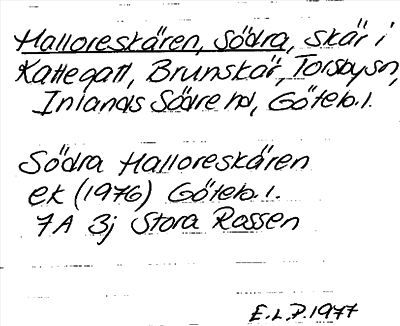 Halloreskären, Södra, skär i
Kattegatt, Brunskär, Torsbysn,
Inlands Södre hd, Göteb.l.
Södra Halloreskären
ek (1976) Göteb.l.
7A 3j Stora Rossen
E.L.P.1977